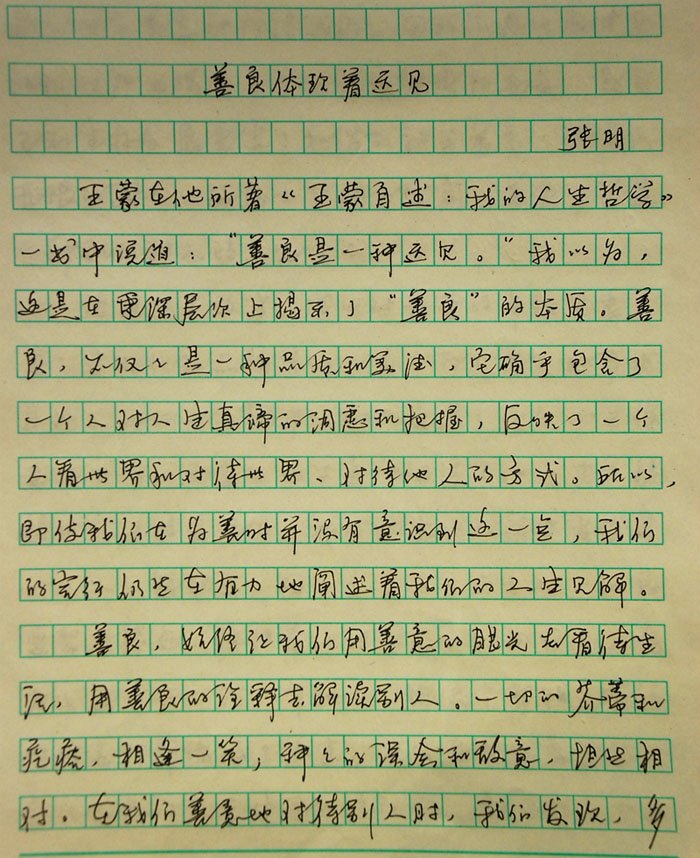 善良体现着远见
张明
王蒙在他所著《王蒙自述：我的人生哲学》
一书中说道："善良是一种远见。"我以为，
这是在更深层次上揭示了"善良"的本质。善
良，不仅仅是一种品质和美德，它确乎包含了
一个人对人生真谛的洞悉和把握，反映了一个
人看世界和对待世界、对待他人的方式。所以，
即使我们在为善时并没有意识到这一点，我们
的言行仍然在有力地阐述着我们的人生见解。
善良，始终让我们用善意的眼光去看待生
活，用善良的诠释去解读别人。一切的芥蒂和
疙瘩，相逢一笑；种种的误会和敌意，坦然相
对。在我们善意地对待别人时，我们发现，多